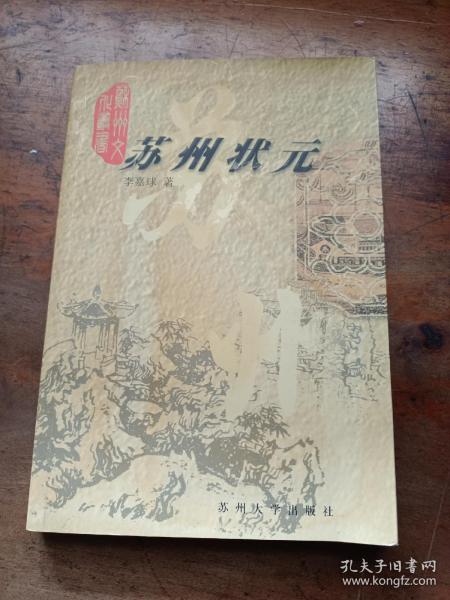 蘇州文
化叢書
苏州状元
李嘉球 著
苏州
苏州大学出版社
孔夫子旧书网
www.kongfz.com